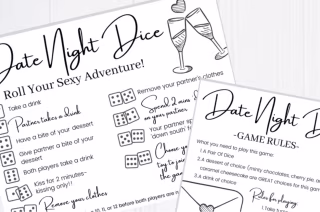 Date Night Dice
Roll Your Sexy Adventure!
Take a drink
Partner takes a drink
Have a bite of your dessert
Give partner a bite of your
dessert
Both players take a drink
Kiss for 2 minutes-
kissing only!!
Remove your clothes
Remove your partner's clothes
Spend 2 mins
on your partner
Your partner sp
down south f
Choose yo
try to
the g
both players are n
Date Night D
-GAME RULES-
What you need to play this game:
1.A Pair Of Dice
2.A dessert of choice (minty chocolates, cherry pie, or
caramel cheesecake are GREAT choices for this game
3.A drink of choice
Rules for playing
1. Take t